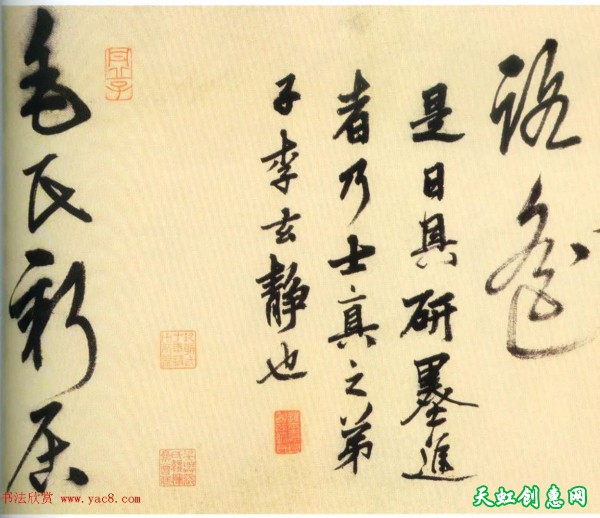 是日具研墨進
者乃士真之弟
子李玄靜也
毛氏新居
书法欣赏 www.yac8.com
天虹创惠网